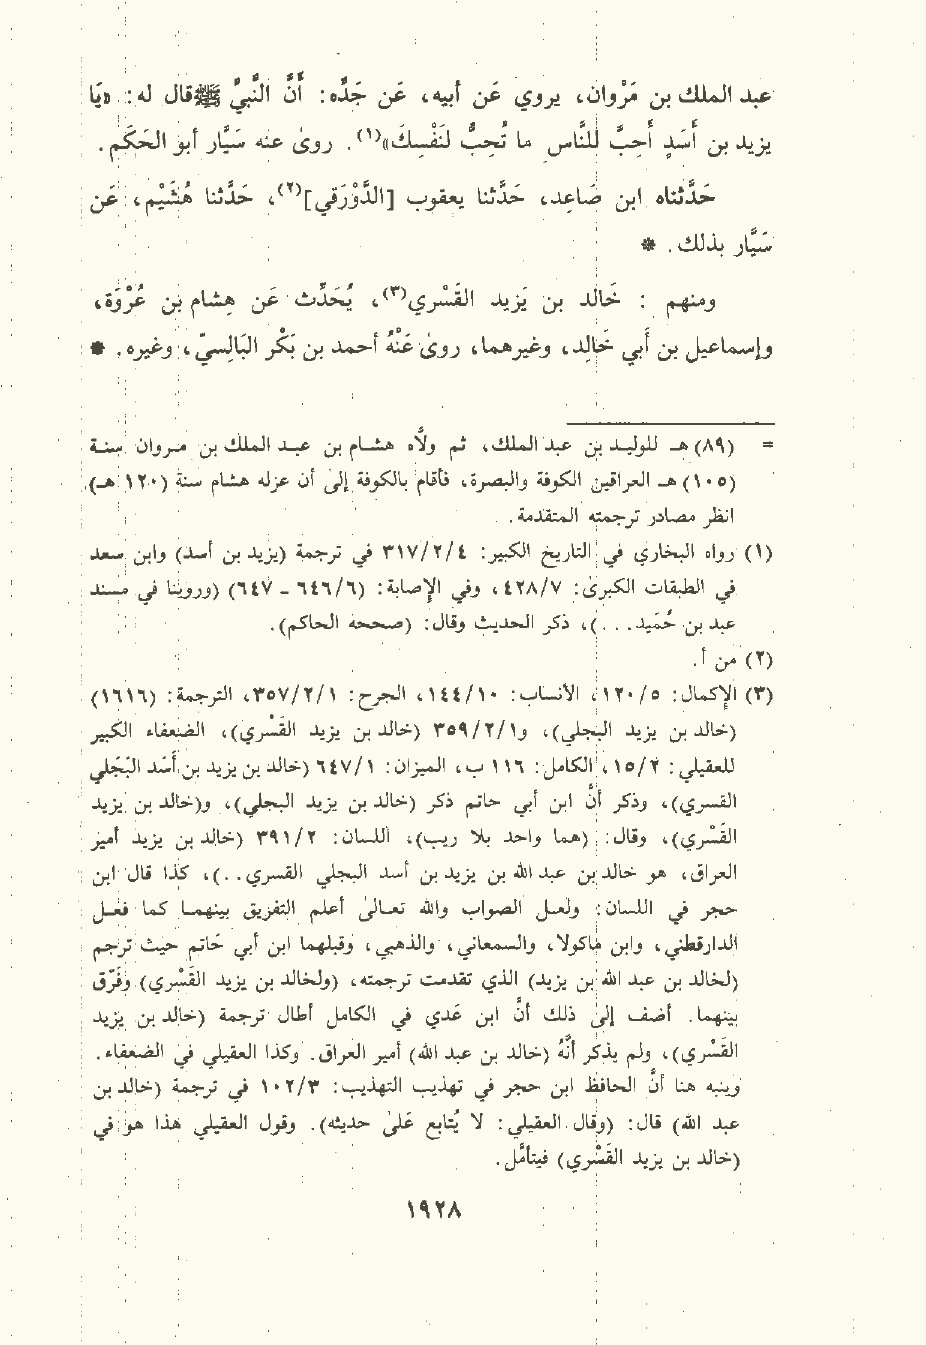 عبد الملك بن مَرْوان، يروي عَن أبيه، عَن جَدِّه: أَنَّ النَّبيَّ ﷺ قال له: «يَا
يزيد بن أَسَدٍ أَحِبَّ لِلنَّاسِ ما تُحِبُّ لِنَفْسِكَ»(١). روىٰ عنه سَيَّار أبو الحَكَم.
حَدَّثناه ابن صَاعِد، حَدَّثنا يعقوب [الدَّوْرَقي](٢)، حَدَّثنا هُشَيْم، عَن
سَيَّار بذلك. *
ومنهم : خَالد بن يَزيد القَسْري(٣)، يُحَدِّث عَن هِشام بن عُرْوَة،
وإسماعيل بن أَبي خَالِد، وغيرهما، روىٰ عَنْهُ أحمد بن بَكْر البَالِسيّ، وغيره. *
= (٨٩) هـ للوليد بن عبد الملك، ثم ولَّاه هشام بن عبد الملك بن مروان سنة
(١٠٥) هـ العراقين الكوفة والبصرة، فأقام بالكوفة إلىٰ أن عزله هشام سنة (١٢٠ هـ).
انظر مصادر ترجمته المتقدمة.
(١) رواه البخاري في التاريخ الكبير: ٣١٧/٢/٤ في ترجمة (يزيد بن أسد) وابن سعد
في الطبقات الكبرىٰ: ٤٢٨/٧، وفي الإصابة: (٦٤٦/٦ - ٦٤٧) (وروينا في مسند
عبد بن حُمَيد...)، ذكر الحديث وقال: (صححه الحاكم).
(٢) من أ.
(٣) الإكمال: ١٢٠/٥، الأنساب: ١٤٤/١٠، الجرح: ٣٥٧/٢/١، الترجمة: (١٦١٦)
(خالد بن يزيد البجلي)، و٣٥٩/٢/١ (خالد بن يزيد القَسْري)، الضعفاء الكبير
للعقيلي: ١٥/٢، الكامل: ١١٦ ب، الميزان: ٦٤٧/١ (خالد بن يزيد بن أَسَد البَجَلي
القسري)، وذكر أنَّ ابن أبي حاتم ذكر (خالد بن يزيد البجلي)، و(خالد بن يزيد
القَسْري)، وقال: (هما واحد بلا ريب)، اللسان: ٣٩١/٢ (خالد بن يزيد أمير
العراق، هو خالد بن عبد الله بن يزيد بن أسد البجلي القسري...)، كذا قال ابن
حجر في اللسان: ولعل الصواب والله تعالىٰ أعلم التفريق بينهما كما فعل
الدارقطني، وابن ماكولا، والسمعاني، والذهبي، وقبلهما ابن أبي حَاتم حيث ترجم
(لخالد بن عبد الله بن يزيد) الذي تقدمت ترجمته، (ولخالد بن يزيد القَسْري) وفَرَّق
بينهما. أضف إلىٰ ذلك أنَّ ابن عَدي في الكامل أطال ترجمة (خالد بن يزيد
القَسْري)، ولم يذكر أنَّهُ (خالد بن عبد الله) أمير العراق. وكذا العقيلي في الضعفاء.
وينبه هنا أنَّ الحافظ ابن حجر في تهذيب التهذيب: ١٠٢/٣ في ترجمة (خالد بن
عبد الله) قال: (وقال العقيلي: لا يُتابع عَلىٰ حديثه). وقول العقيلي هذا هو في
(خالد بن يزيد القَسْري) فيتأمَّل.
١٩٢٨